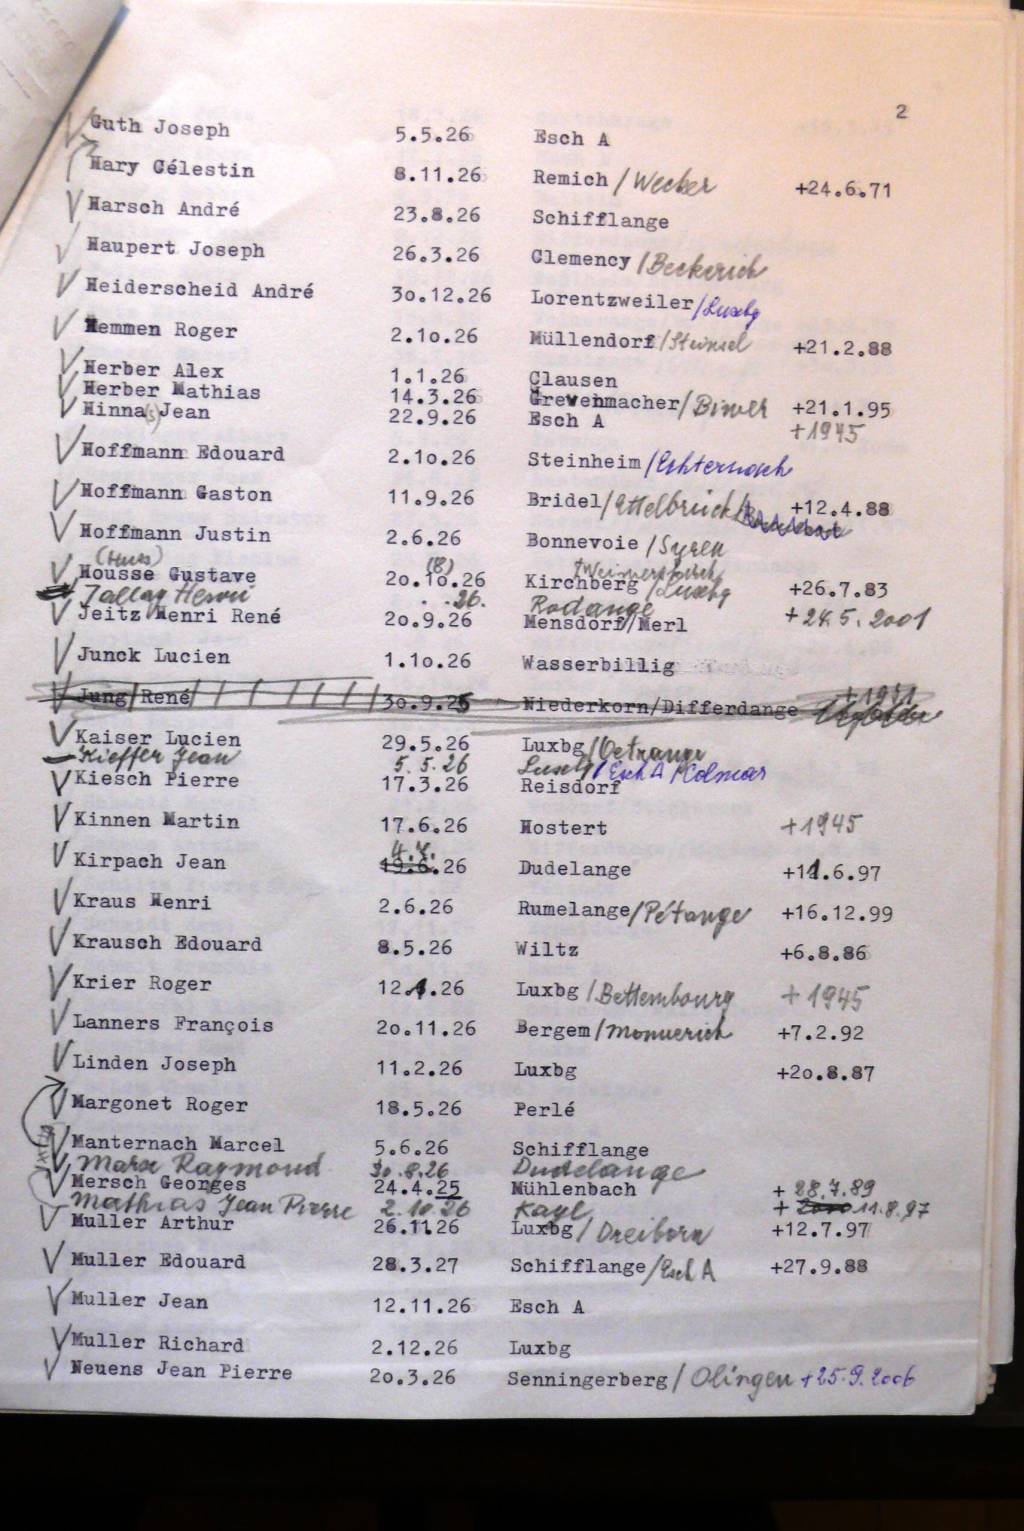 2
Guth Joseph 5.5.26 Esch A
Hary Célestin 8.11.26 Remich /Wecker +24.6.71
Harsch André 23.8.26 Schifflange
Haupert Joseph 26.3.26 Clemency /Beckerich
Heiderscheid André 3o.12.26 Lorentzweiler /Luxbg
Hemmen Roger 2.1o.26 Müllendorf /Steinsel +21.2.88
Herber Alex 1.1.26 Clausen
Herber Mathias 14.3.26 Grevenmacher/ Biwer +21.1.95
Hinna(s) Jean 22.9.26 Esch A +1945
Hoffmann Edouard 2.1o.26 Steinheim /Echternach
Hoffmann Gaston 11.9.26 Bridel/Ettelbrück/ +12.4.88
Hoffmann Justin 2.6.26 Bonnevoie /Syren
(Huss) (8) /Weimershirch
Housse Gustave 2o.1o.26 Kirchberg /Luxbg +26.7.83
Jallay Henri . .26. Rodange
Jeitz Henri René 2o.9.26 Mensdorf/Merl +24.5.2001
Junck Lucien 1.1o.26 Wasserbillig
Jung René 3o.9.25 Niederkorn/Differdange
Kaiser Lucien 29.5.26 Luxbg/Oetrange
Kieffer Jean 5.5.26 Luxbg/Esch A /Colmar
Kiesch Pierre 17.3.26 Reisdorf
Kinnen Martin 17.6.26 Hostert +1945
4.7.
Kirpach Jean 19.6.26 Dudelange +11.6.97
Kraus Henri 2.6.26 Rumelange/Pétange +16.12.99
Krausch Edouard 8.5.26 Wiltz +6.8.86
Krier Roger 12.1.26 Luxbg /Bettembourg +1945
Lanners François 2o.11.26 Bergem/Monnerich +7.2.92
Linden Joseph 11.2.26 Luxbg +2o.8.87
Margonet Roger 18.5.26 Perlé
Manternach Marcel 5.6.26 Schifflange
Marx Raymond 30.8.26 Dudelange
Mersch Georges 24.4.25 Mühlenbach + 28.7.89
Mathias Jean Pierre 2.10.26 Kayl + 11.8.97
Muller Arthur 26.11.26 Luxbg/ Dreiborn +12.7.97
Muller Edouard 28.3.27 Schifflange/Esch A +27.9.88
Muller Jean 12.11.26 Esch A
Muller Richard 2.12.26 Luxbg
Neuens Jean Pierre 2o.3.26 Senningerberg/ Olingen +25.9.2006